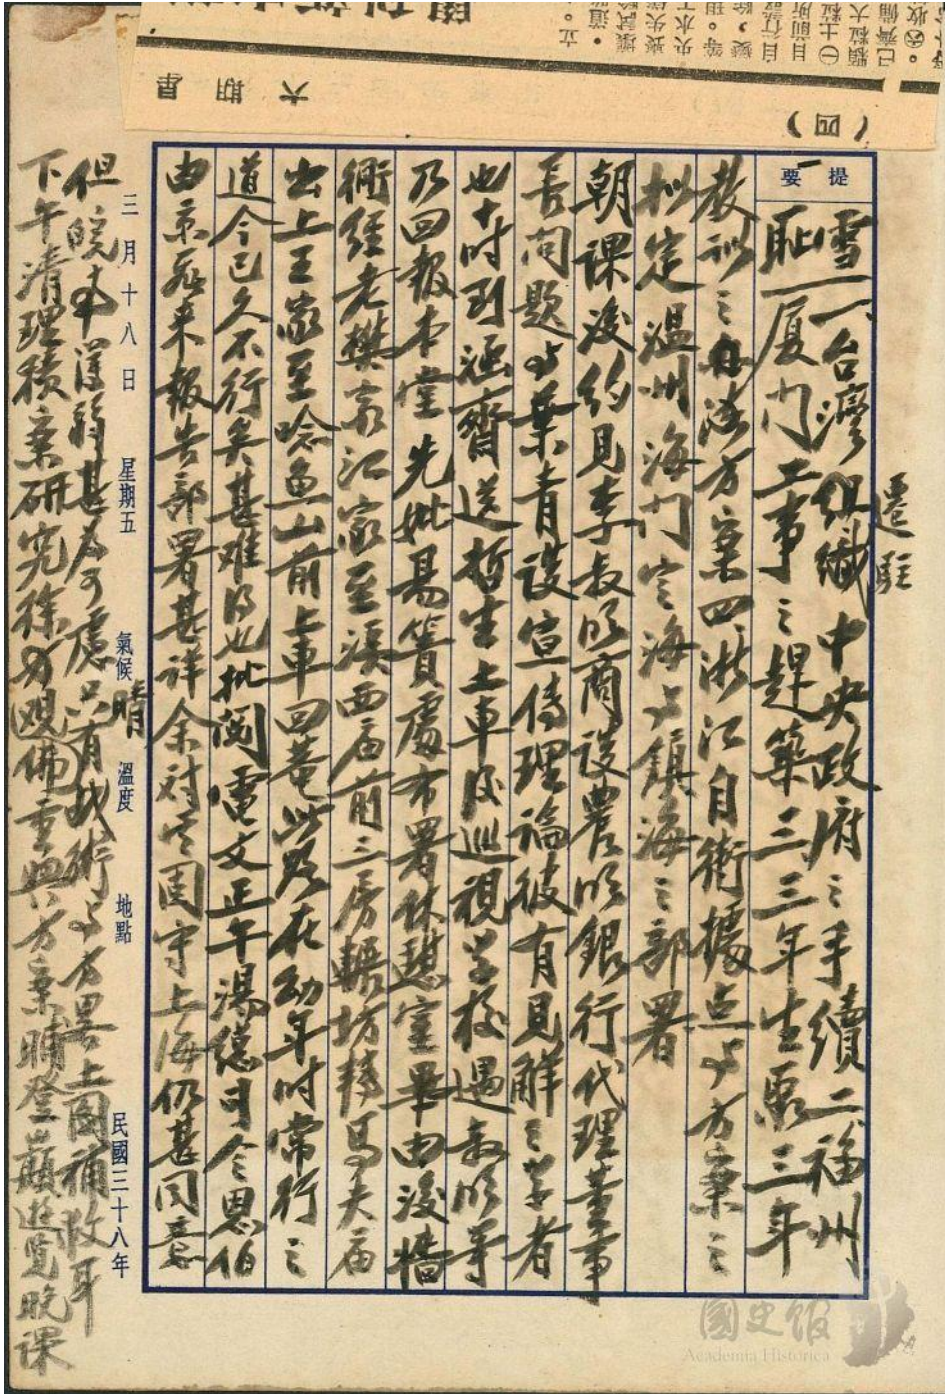 （四）
星期六
提要
遷駐
雪一、台灣組織中央政府之手續二、福州
恥厦门工事之趕築三、三年生聚三年
教训之方案四、浙江自衛據点与方案之
拟定温州海门定海与鎮海之部署
朝课後约見李叔明商谈農民銀行代理董事
長问题与葉青谈宣传理論彼有見解之学者
也十时到涵齋送哲生上车後巡視学校遇叔明等
乃回報本堂先妣易簀處布署休憩室畢由後墙
衖經老樊家江家至溪西庙前三房
出上王家至唸鱼山前上車回菴此路在幼年时常行之
道今已久不行矣甚难得也批阅電文正午湯總司令恩伯
由京飛来報告部署甚详余对其固守上海仍甚同意
三月十八日 星期五 氣候 晴 溫度 地點 民國三十八年
但皖南薄弱甚為可慮只有战術与方畧上圖補救耳
下午清理積案研究徐方案晡登巔遊览晚课
國史館
Academia Historica